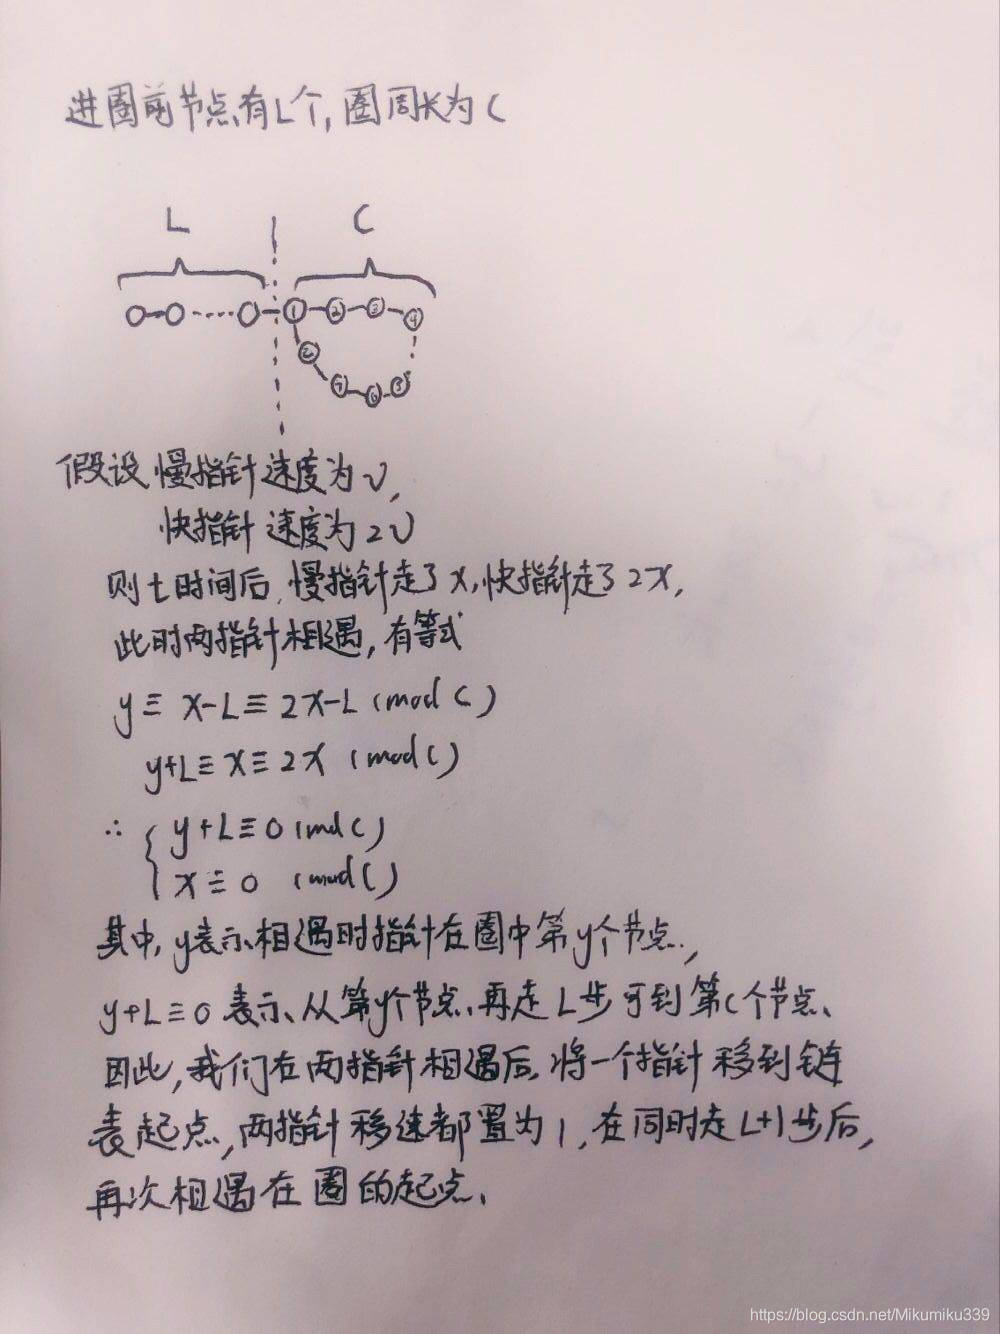 进圈前节点有L个,圈周长为C
L C
① ② ③ ④
② ⑦ ⑥ ⑤
假设慢指针速度为v,
快指针速度为2v
则t时间后,慢指针走了x,快指针走了2x,
此时两指针相遇,有等式
y≡x-L≡2x-L(mod C)
y+L≡x≡2x (mod C)
∴ { y+L≡0(mod C)
x≡0 (mod C)
其中,y表示相遇时指针在圈中第y个节点,
y+L≡0表示、从第y个节点、再走L步可到第C个节点、
因此,我们在两指针相遇后,将一个指针移到链
表起点,两指针移速都置为1,在同时走L+1步后,
再次相遇在圈的起点、
https://blog.csdn.net/Mikumiku339